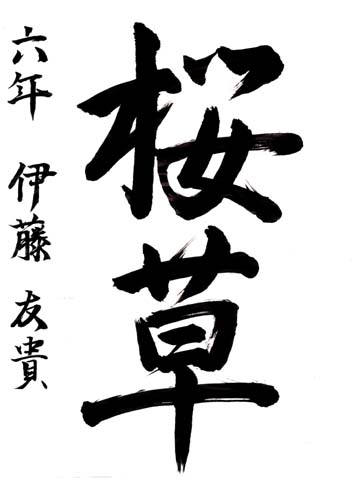 桜草
六年 伊藤 友貴